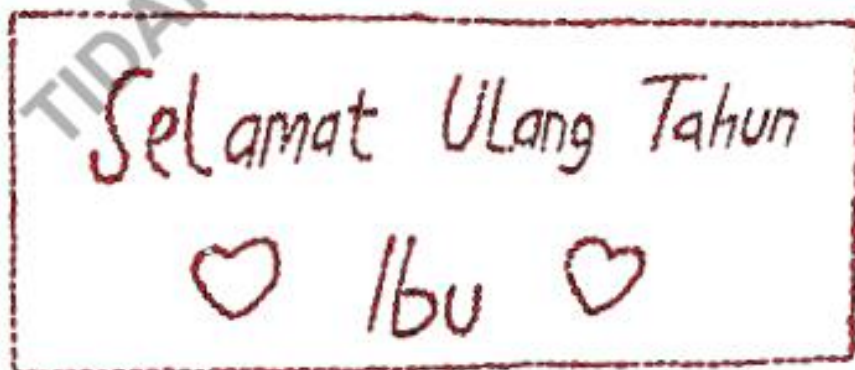 TIDA
Selamat Ulang Tahun
Ibu